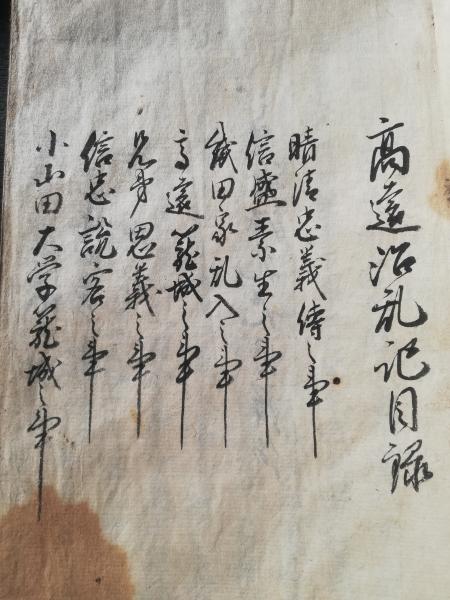 高遠治乱記目録
晴清忠義傳之事
信盛素生之事
織田家乱入之事
高遠籠城之事
兄弟恩義之事
信忠説客之事
小山田大学籠城之事